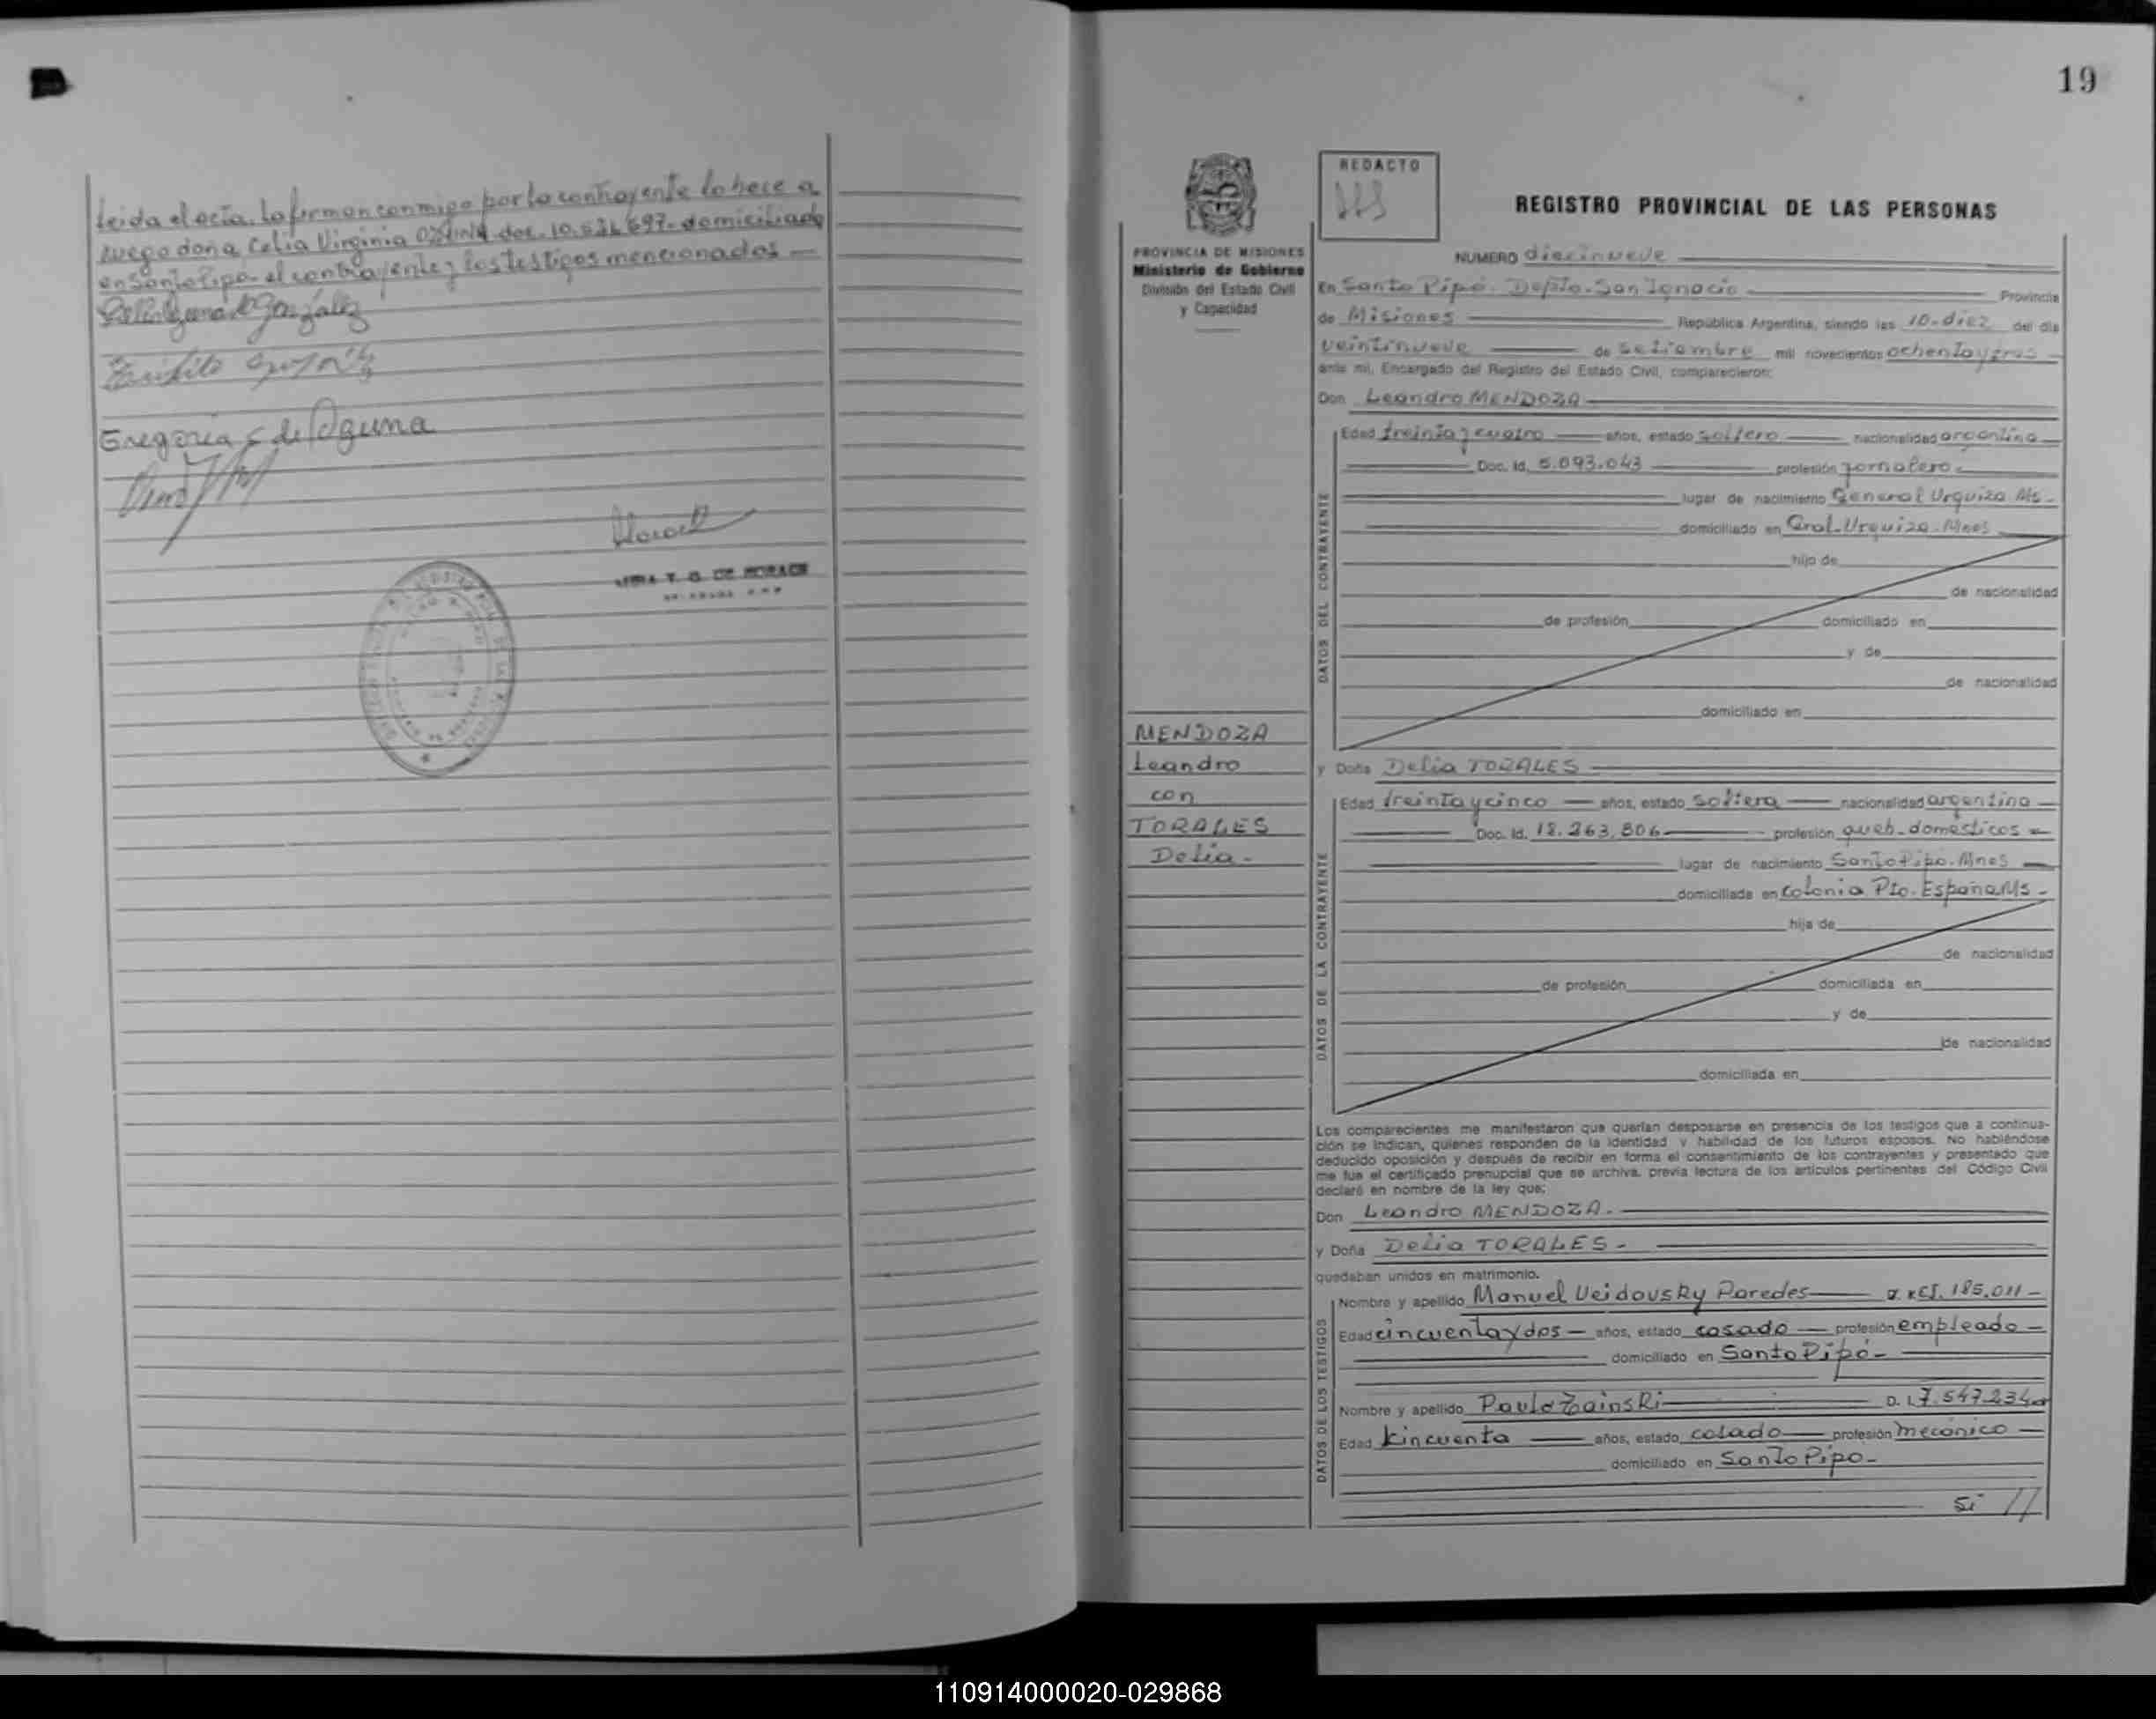 Leida el acta. la firman conmigo por la contrayente lo hace a
ruego doña Celia Virginia doc. 10. domiciliada
en Santo Pipo. el contrayente y los testigos mencionados —
González
Gregoria de Oguna
T. G. DE
19
REDACTO
REGISTRO PROVINCIAL DE LAS PERSONAS
PROVINCIA DE MISIONES
Ministerio de Gobierno
División del Estado Civil
y Capacidad
NUMERO diecinueve
En Santo Pipó. Depto. San Ignacio Provincia
de Misiones República Argentina, siendo las 10-diez del día
veintinueve de setiembre mil novecientos ochenta y tres
ante mí, Encargado del Registro del Estado Civil, comparecieron:
Don Leandro MENDOZA
Edad treinta y cuatro años, estado soltero nacionalidad argentina
Doc. Id. 5.093.043 profesión jornalero.
lugar de nacimiento General Urquiza Ms.
domiciliado en Gral. Urquiza. Mnes
DATOS DEL CONTRAYENTE
hijo de
de nacionalidad
de profesión domiciliado en
y de
de nacionalidad
domiciliado en
MENDOZA
Leandro
con
TORALES
Delia -
y Doña Delia TORALES
Edad treinta y cinco años, estado soltera nacionalidad argentina
Doc. Id. 18.263.806 profesión queh. domesticos
lugar de nacimiento Santo Pipo. Mnes
domiciliada en Colonia Pto. España Ms -
DATOS DE LA CONTRAYENTE
hija de
de nacionalidad
de profesión domiciliada en
y de
de nacionalidad
domiciliada en
Los comparecientes me manifestaron que querían desposarse en presencia de los testigos que a continua-
ción se indican, quienes responden de la identidad y habilidad de los futuros esposos. No habiéndose
deducido oposición y después de recibir en forma el consentimiento de los contrayentes y presentado que
me fue el certificado prenupcial que se archiva, previa lectura de los artículos pertinentes del Código Civil
declaré en nombre de la ley que:
Don Leandro MENDOZA.
y Doña Delia TORALES -
quedaban unidos en matrimonio.
DATOS DE LOS TESTIGOS
Nombre y apellido Manuel Veidovsky Paredes 185.011 -
Edad cincuenta y dos años, estado casado profesión empleado
domiciliado en Santo Pipó -
Nombre y apellido Paulo Zainski D. I. 7.547.234
Edad kincuenta años, estado casado profesión mecánico
domiciliado en Santo Pipo -
Si //
110914000020-029868